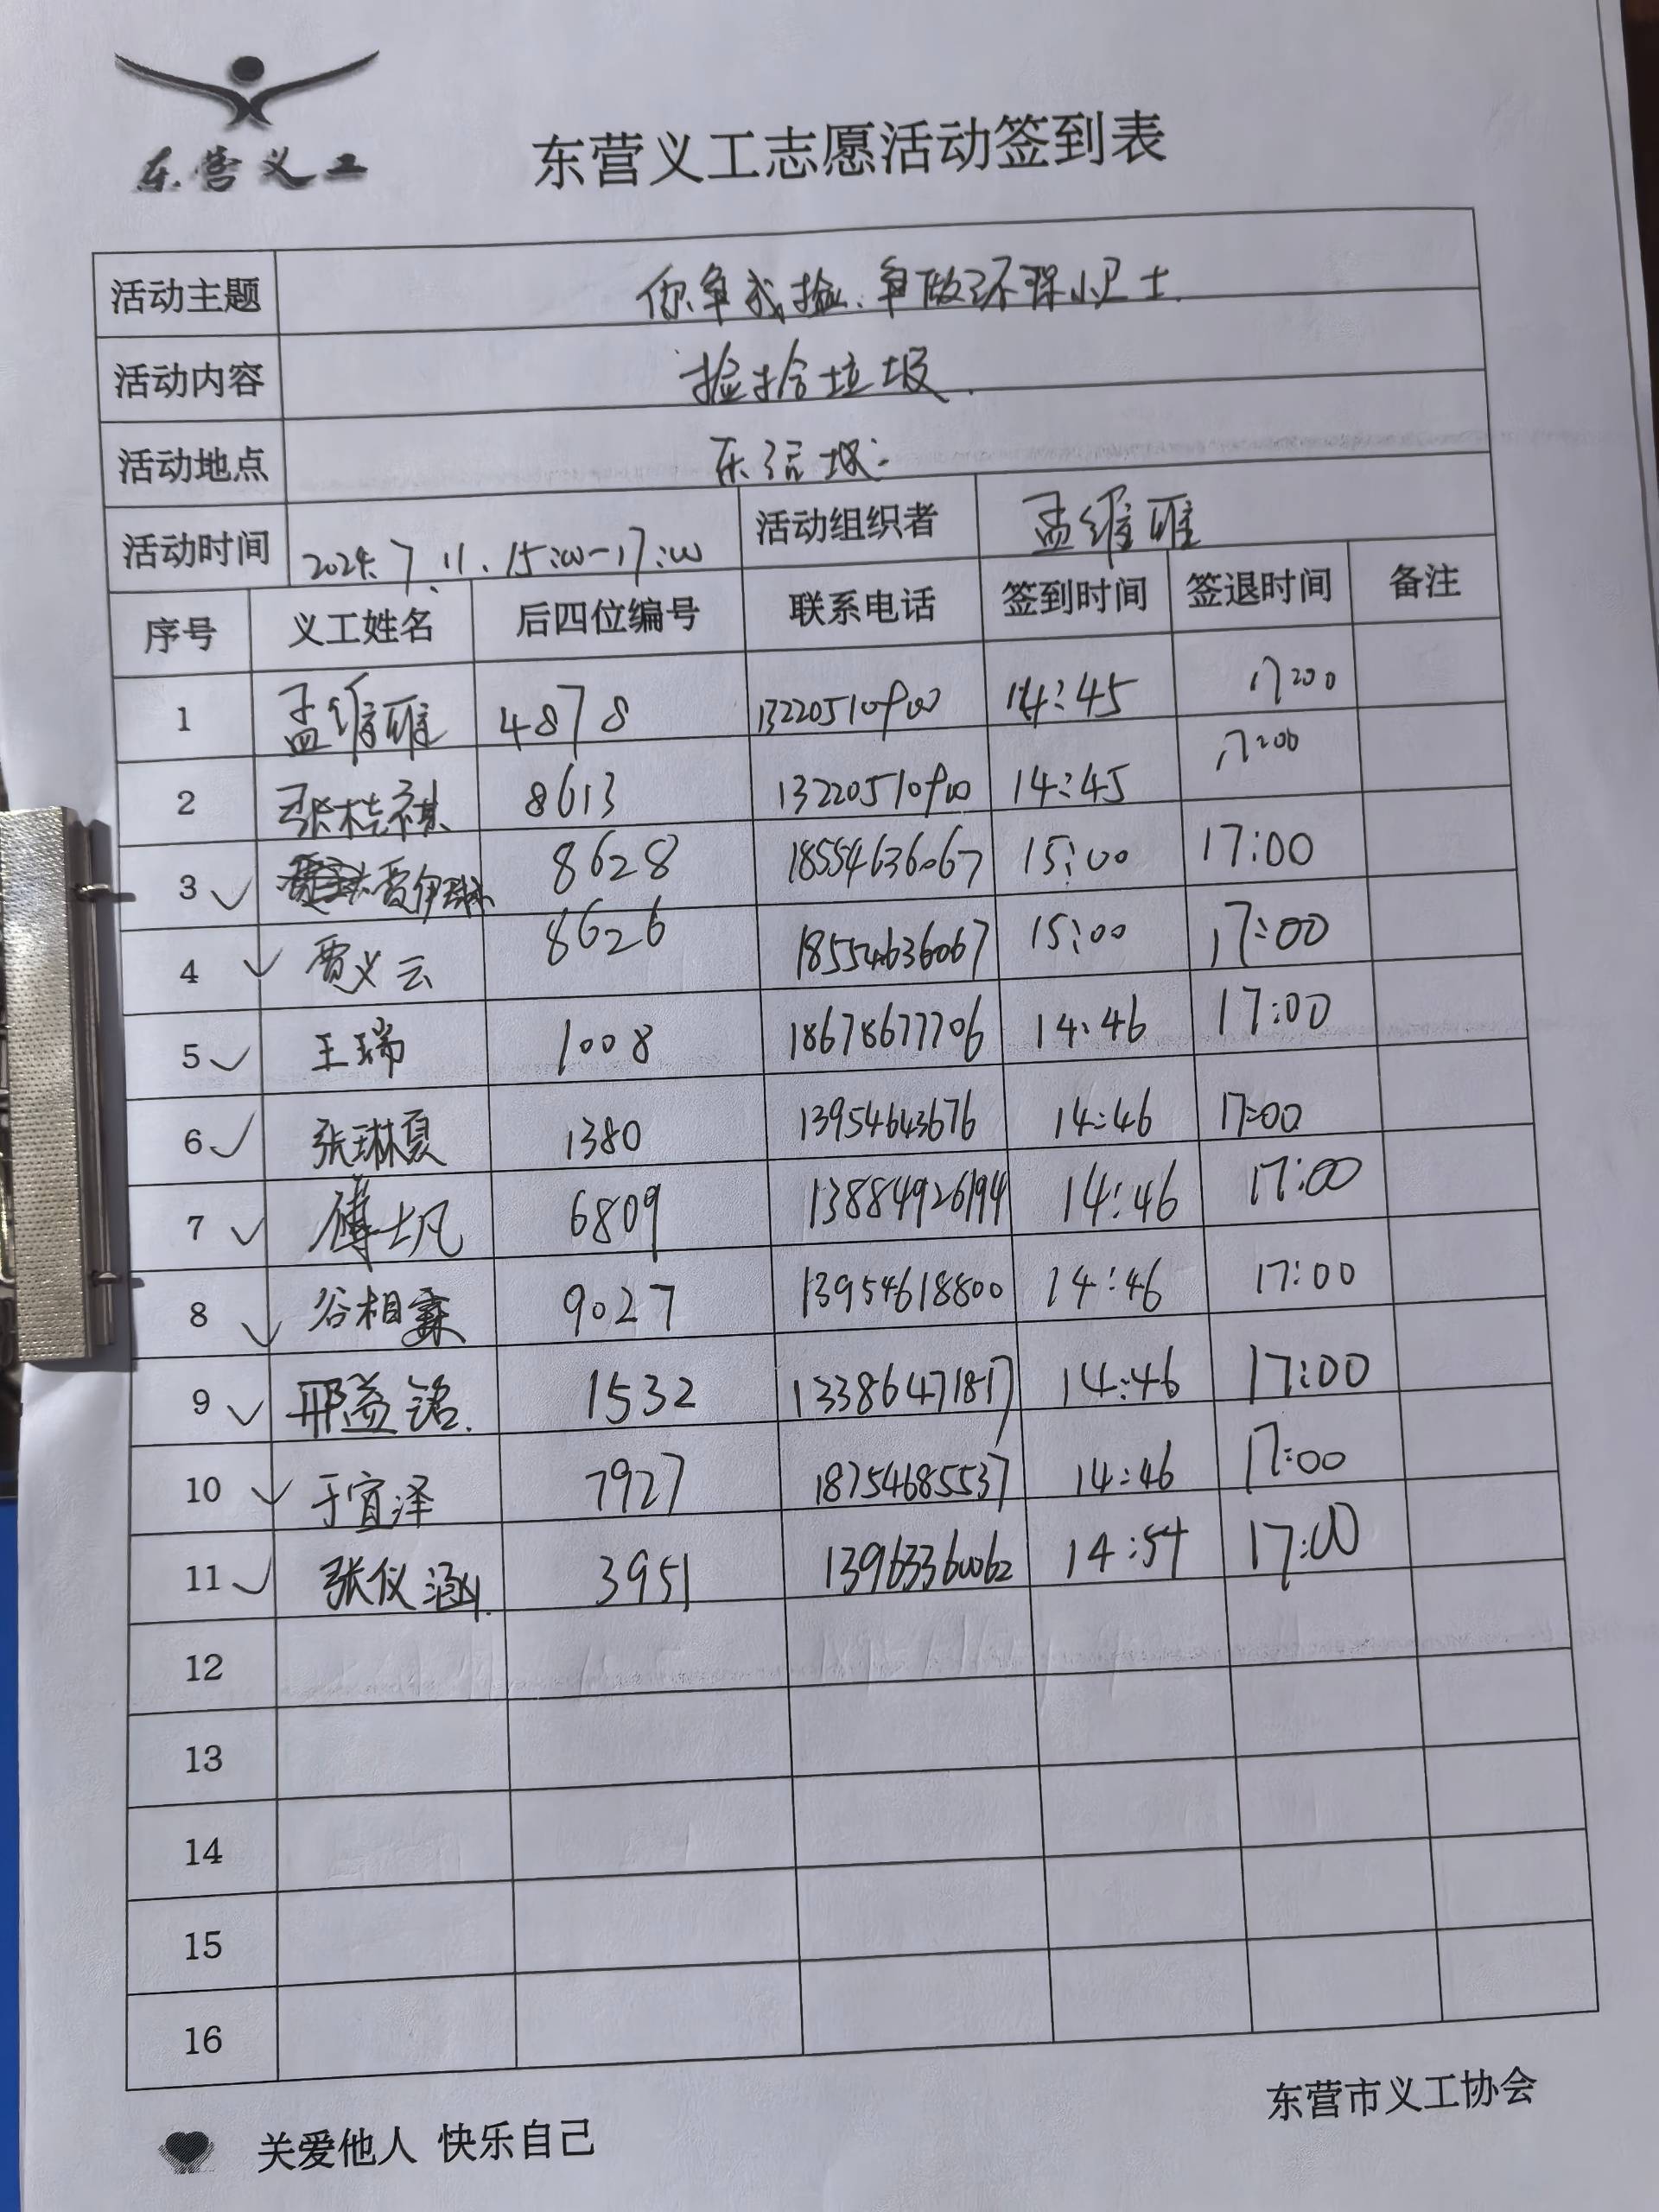 东营义工
东营义工志愿活动签到表
活动主题 你争我捡、争做环保小卫士
活动内容 捡拾垃圾
活动地点
活动时间 2024.7.11.15:00-17:00 活动组织者 孟维雅
序号 义工姓名 后四位编号 联系电话 签到时间 签退时间 备注
1 孟维雅 4878 13220510900 14:45 17:00
2 张桂祺 8613 13220510900 14:45 17:00
3 ✓ 贾伊琳 8628 18554636067 15:00 17:00
4 ✓ 贾义云 8626 18554636067 15:00 17:00
5 ✓ 王瑞 1008 18678677706 14:46 17:00
6 ✓ 张琳夏 1380 13954643676 14:46 17:00
7 ✓ 傅士凡 6809 13884926194 14:46 17:00
8 ✓ 谷相霖 9027 13954618800 14:46 17:00
9 ✓ 邢益铭. 1532 13386471817 14:46 17:00
10 ✓ 于宜泽 7927 18754685537 14:46 17:00
11 ✓ 张仪涵. 3951 13963360062 14:54 17:00
12
13
14
15
16
东营市义工协会
关爱他人 快乐自己